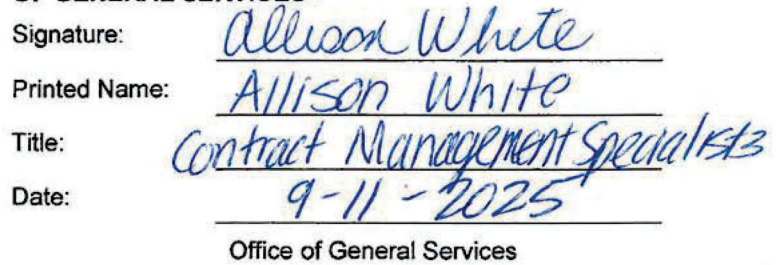 OF GENERAL SERVICES
Signature: Allison White
Printed Name: Allison White
Title: Contract Management Specialist 3
Date: 9-11-2025
Office of General Services